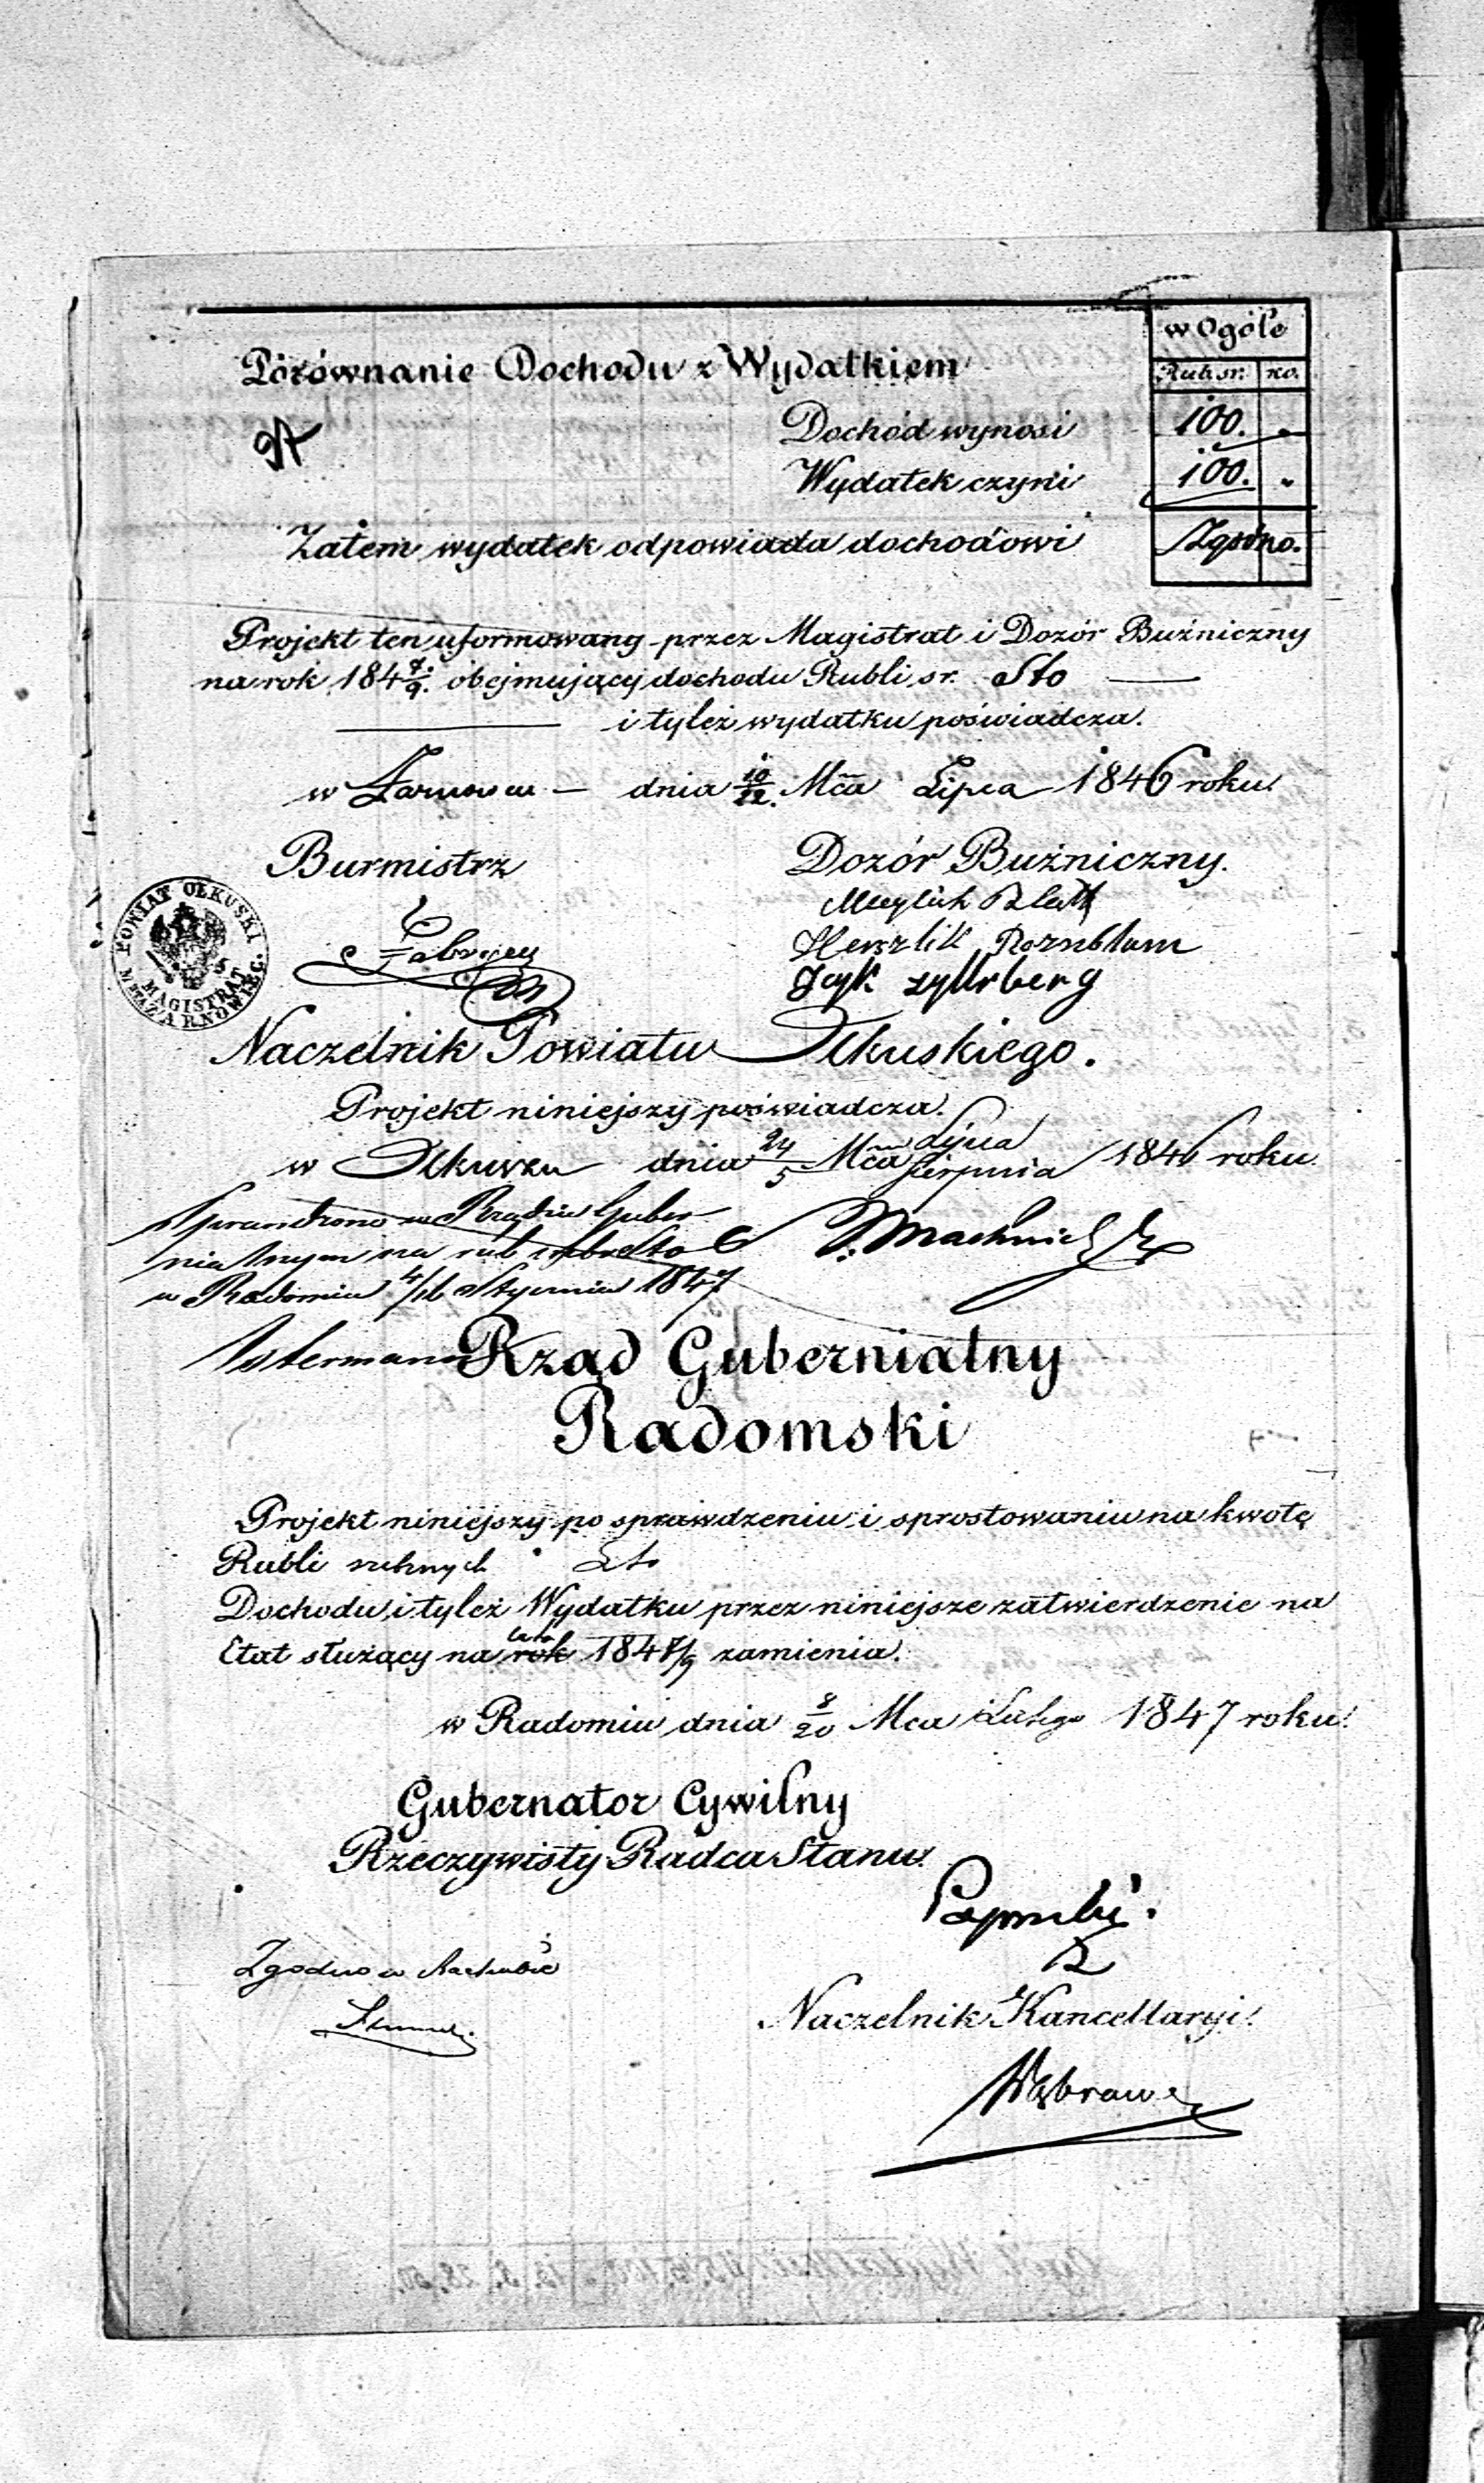 w Ogóle
Porównanie Dochodu z Wydatkiem
Rub. sr. ko.
Dochód wynosi 100. "
Wydatek czyni 100. "
Zatem wydatek odpowiada dochodowi Zgodno.
Projekt ten uformowany przez Magistrat i Dozór Buźniczny
na rok 184 7/9. obejmujący dochodu Rubli sr. Sto
i tyleż wydatku poświadcza.
w Żarnowcu dnia 10/22. Mca Lipca 1846 roku.
Burmistrz Dozór Buźniczny.
POWIAT OLKUSKI
MAGISTRAT
MIASTA ŻARNOWIEC.
Herszlik Roznblum
Naczelnik Powiatu Olkuskiego.
Projekt niniejszy poświadcza.
w Olkuszu dnia 24/5 Mca Lipca/Sierpnia 1846 roku
Sprawdzono w Rządzie Guber-
nialnym na rub. srebre Sto
w Radomiu 4/16 Stycznia 1847
Rząd Gubernialny
Radomski
Projekt niniejszy po sprawdzeniu i sprostowaniu na kwotę
Rubli srebnych Sto
Dochodu i tyleż Wydatku przez niniejsze zatwierdzenie na
lata
Etat służący na rok 184 7/9 zamienia.
w Radomiu dnia 8/20 Mca Lutego 1847 roku.
Gubernator Cywilny
Rzeczywisty Radca Stanu.
Zgodno w Rachubie
Naczelnik Kancellaryi.